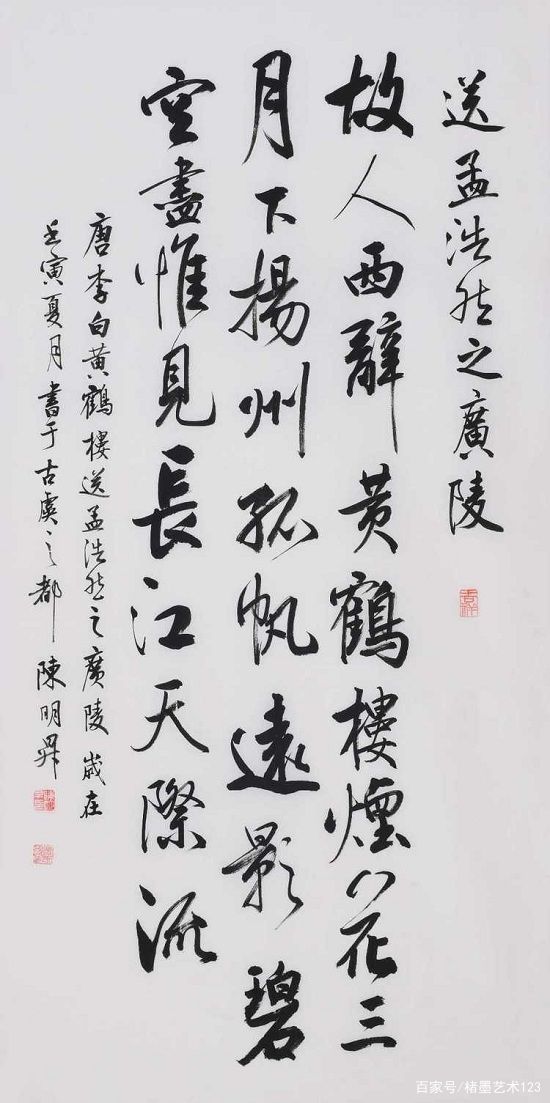 送孟浩然之廣陵
故人西辭黄鶴樓煙花三
月下揚州孤帆遠影碧
空盡惟見長江天際流
唐李白黄鶴樓送孟浩然之廣陵歲在
壬寅夏月書于古虞之都陳明昇
百家号/楮墨艺术123